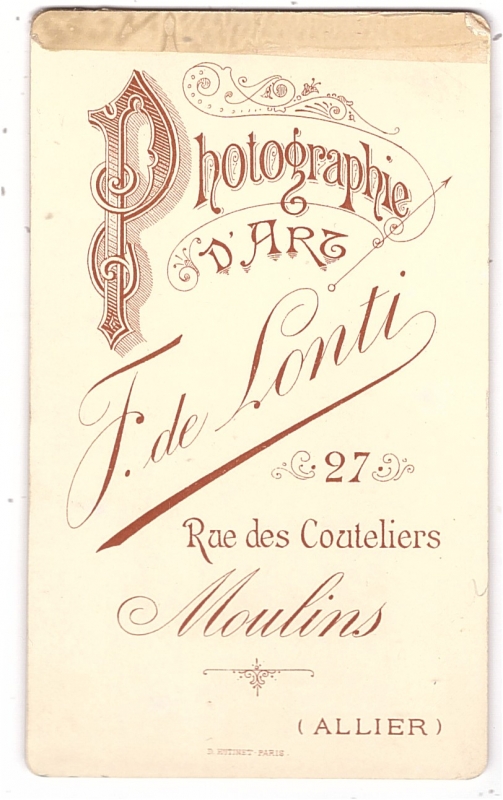 Photographie
D'ART
F. de Lonti
27
Rue des Couteliers
Moulins
(ALLIER)
D. HUTINET - PARIS -